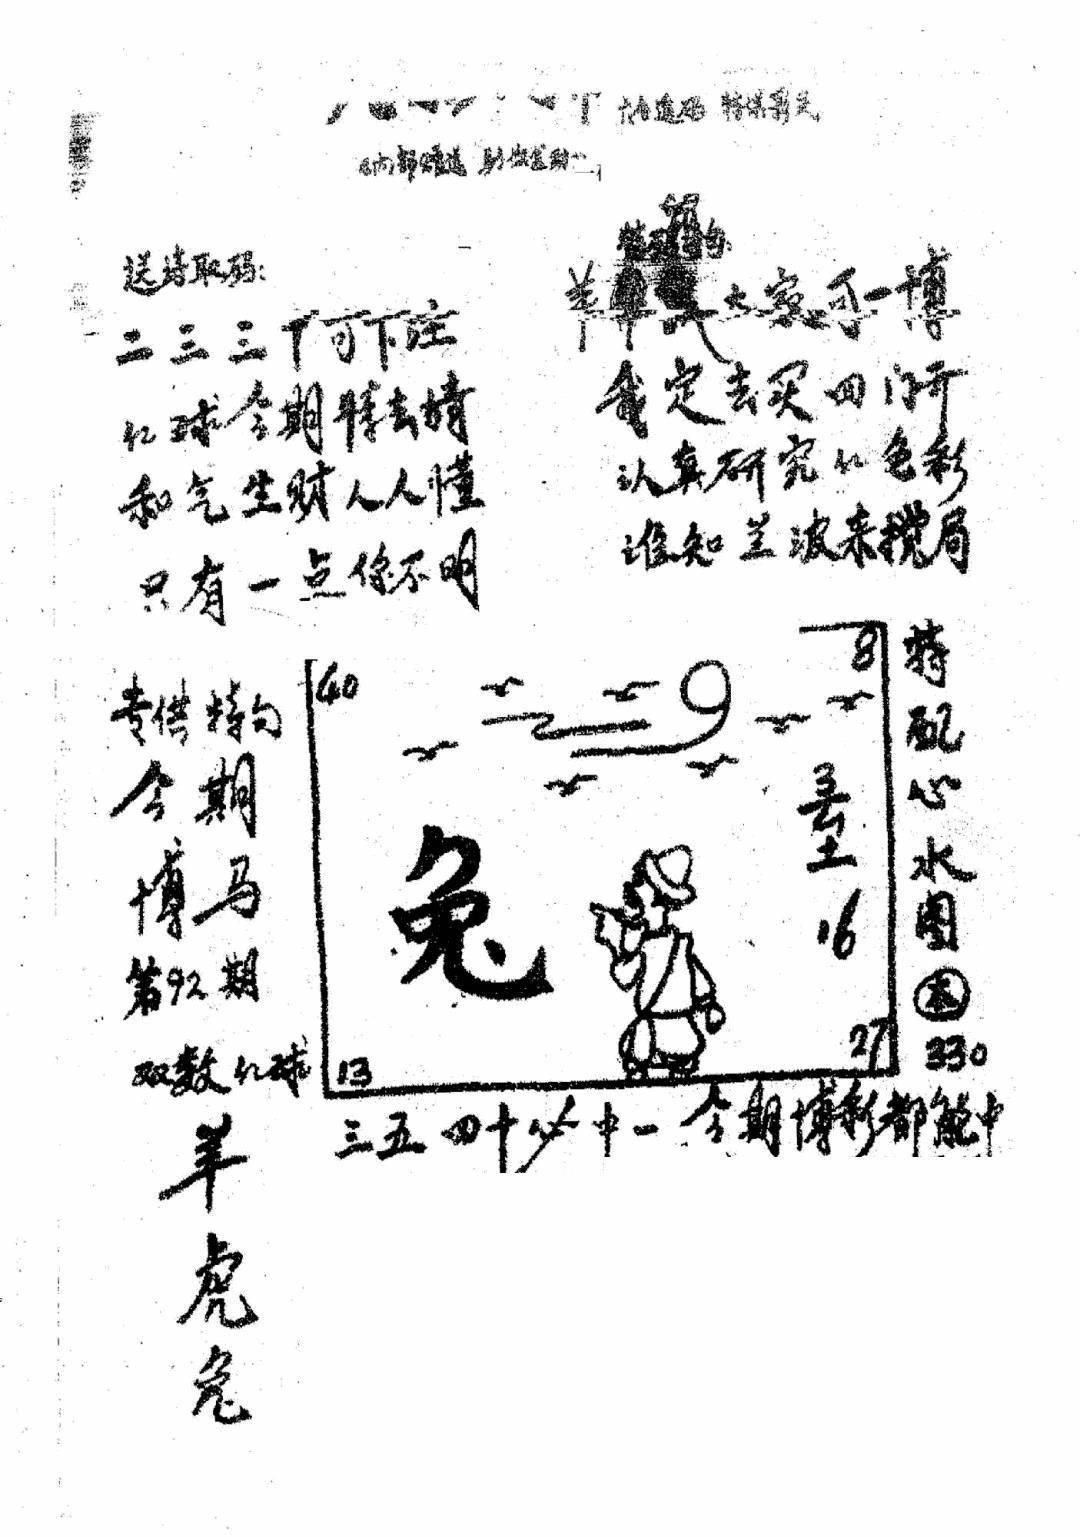 送诗取码:
二三三十可下注
红球今期特去精
和气生财人人懂
只有一点你不明
大家可一博
我定去买四门开
认真研究红色彩
谁知兰波来搅局
专供特句
今期
博马
第92期
双数红球
羊
虎
兔
40
8
9
兔
16
13
27
特配心水图
330
三五四十必中一 今期博彩都能中